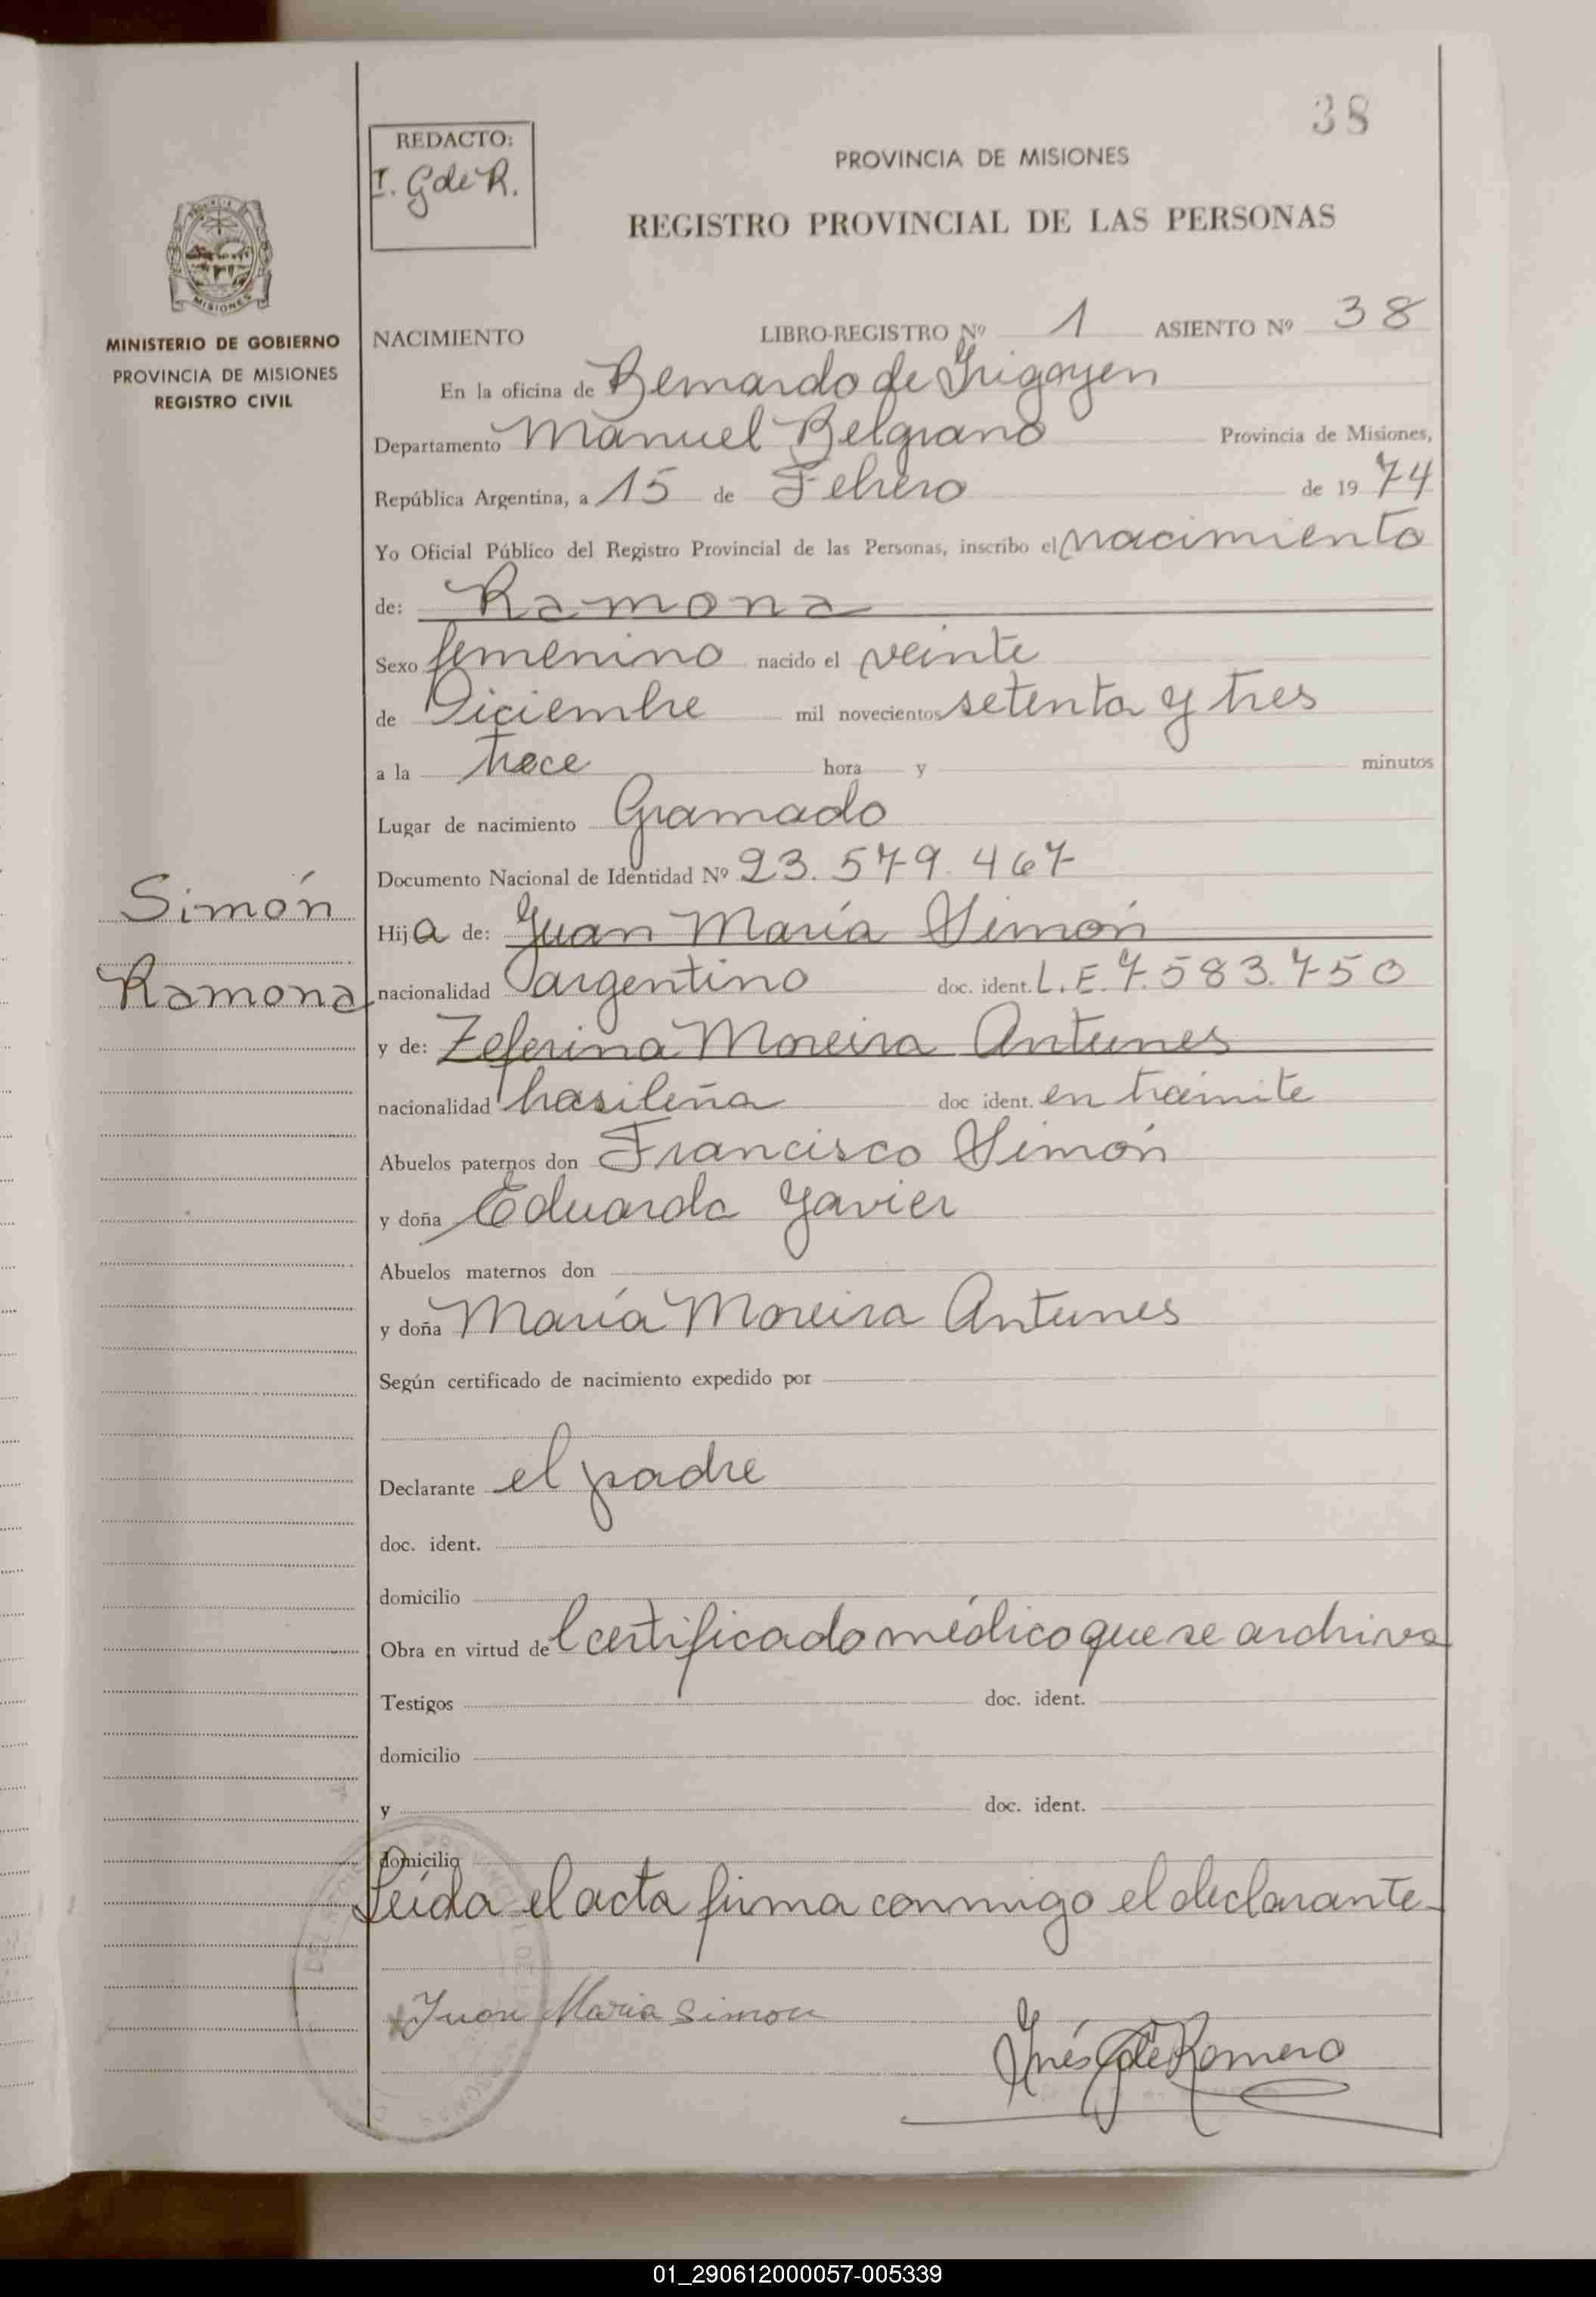 38
REDACTO:
I. G de R.
PROVINCIA DE MISIONES
REGISTRO PROVINCIAL DE LAS PERSONAS
MISIONES
MINISTERIO DE GOBIERNO
PROVINCIA DE MISIONES
REGISTRO CIVIL
NACIMIENTO LIBRO-REGISTRO Nº 1 ASIENTO Nº 38
En la oficina de Bernardo de Irigoyen
Departamento Manuel Belgrano Provincia de Misiones,
República Argentina, a 15 de Febrero de 19 74
Yo Oficial Público del Registro Provincial de las Personas, inscribo el nacimiento
de: Ramona
Sexo femenino nacido el veinte
de Diciembre mil novecientos setenta y tres
a la trece hora y minutos
Lugar de nacimiento Gramado
Documento Nacional de Identidad Nº 23.579.467
Simón
Hija de: Juan María Simón
Ramona
nacionalidad argentino doc. ident. L.E. 7.583.750
y de: Zeferina Moreira Antunes
nacionalidad brasileña doc ident. en trámite
Abuelos paternos don Francisco Simón
y doña Eduarda Javier
Abuelos maternos don
y doña María Moreira Antunes
Según certificado de nacimiento expedido por
Declarante el padre
doc. ident.
domicilio
Obra en virtud del certificado médico que se archiva
Testigos doc. ident.
domicilio
y doc. ident.
domicilio
Leída el acta firma conmigo el declarante-
Juan Maria Simon
Inés G de Romero
01_290612000057-005339